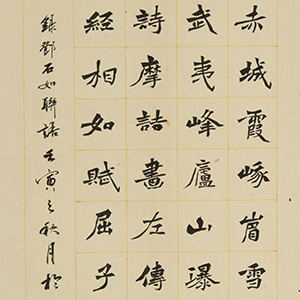 赤城霞峨眉雪
武夷峰廬山瀑
詩摩詰畫左傳
經相如賦屈子
錄鄧石如聯語壬寅之秋月於